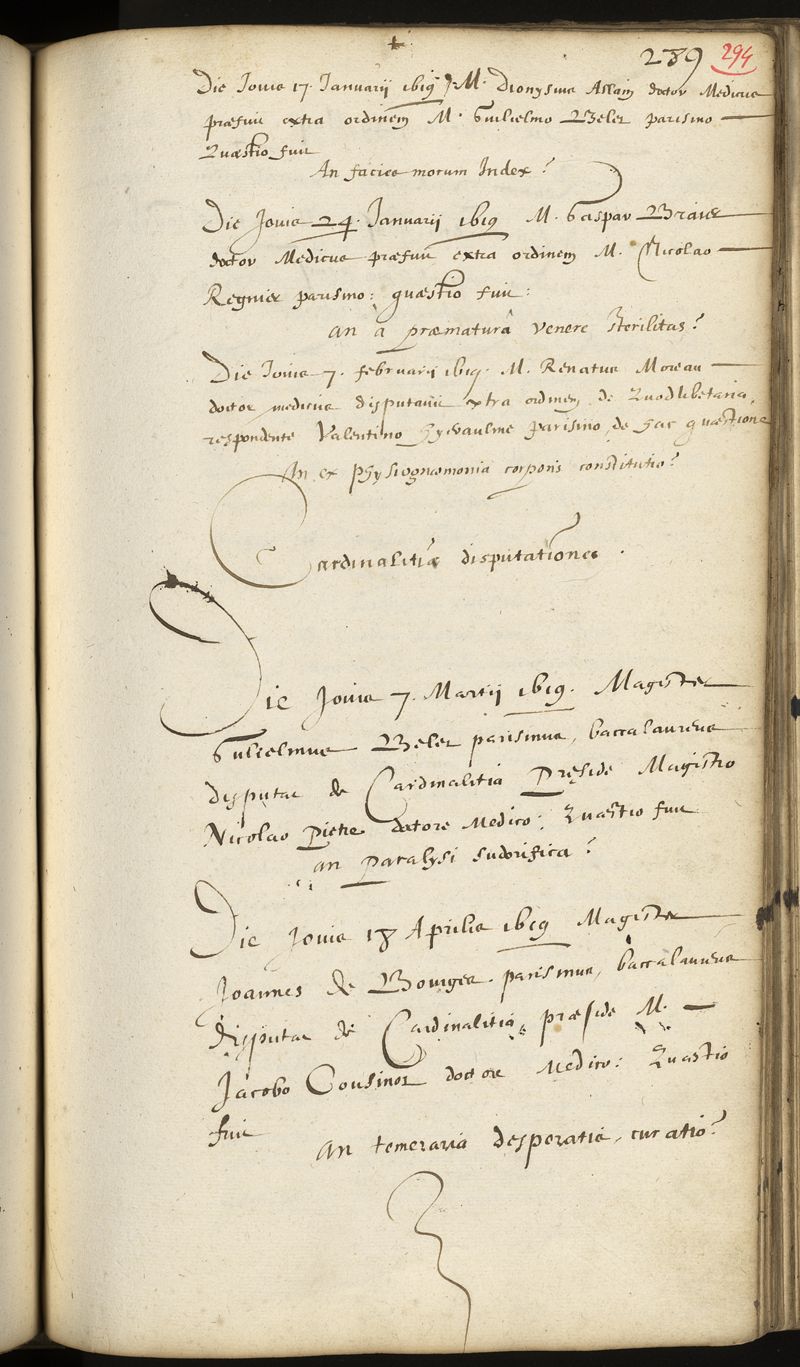 289 294
Die Jovis 17. Januarii 1619 M. Dionysius Allain doctor Medicus
præfuit extra ordinem M. Guilielmo Belet parisino
Quæstio fuit
An facies morum Index?
Die Jovis 24. Januarii 1619 M. Gaspar Brayer
doctor Medicus præfuit extra ordinem M. Nicolao
Regnier parisino: quæstio fuit:
an à præmaturâ venere sterilitas?
Die Jovis 7. februarii 1619. M. Renatus Moreau
doctor medicus disputavit extra ordinem de Quodlibetaria,
respondente Valentino Hyevaulme parisino de hac quæstione
An ex physiognœmonia corporis constitutio?
Cardinalitiæ disputationes.
Die Jovis 7. Martij 1619. Magister
Gulielmus Belet parisinus, baccalaureus
disputat de Cardinalitia Præside Magistro
Nicolao Pietre doctore Medico: Quæstio fuit
an Paralysi sudorifica?
Die Jovis 18 Aprilis 1619 Magister
Joannes de Bourges parisinus, baccalaureus
disputat de Cardinalitia, præside M.
Jacobo Cousinot doctore Medico: Quæstio
fuit
An temeraria desperatis, curatio?